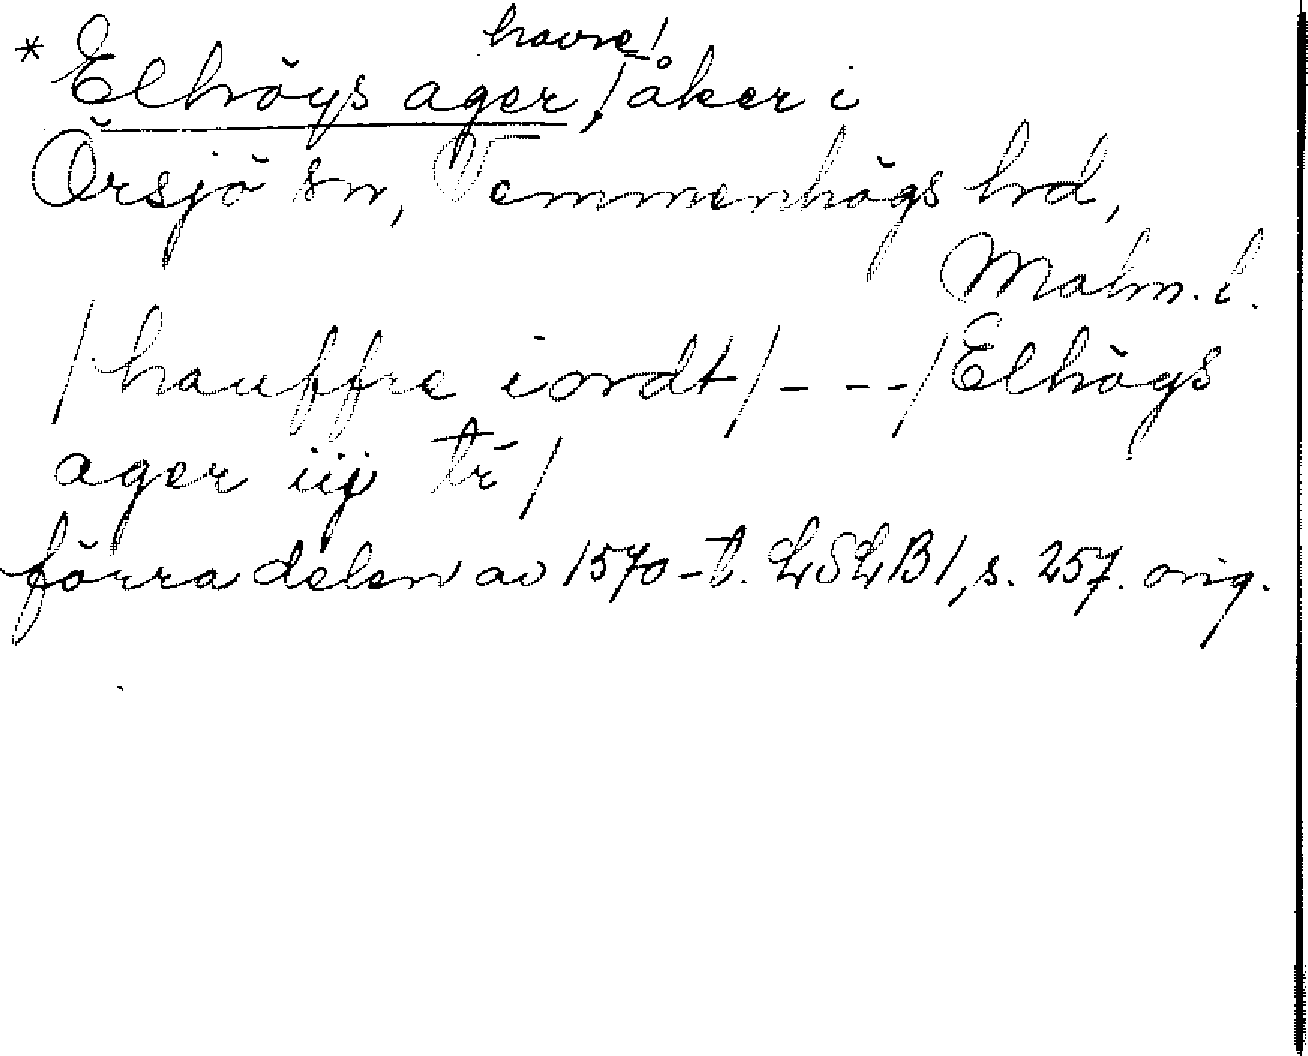 * Elhöys ager, /havre/åker i
Örsjö sn, Vemmenhögs hrd,
Malm. l.
/hauffre iordt/ - - -/Elhögs
ager iij tr/
förra delen av 1570-t. LSLB1, s. 257. orig.